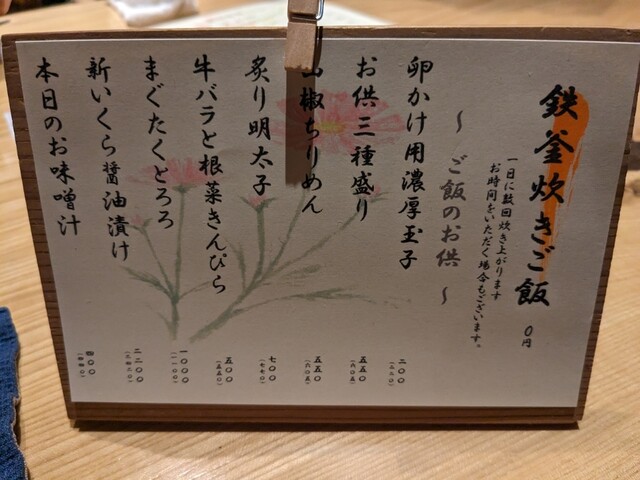 鉄釜炊きご飯 0円
一日に数回炊き上がります
お時間をいただく場合もございます。
～ ご飯のお供 ～
卵かけ用濃厚玉子 二〇〇
(二二〇)
お供三種盛り 五五〇
(六〇五)
山椒ちりめん 五五〇
(六〇五)
炙り明太子 七〇〇
(七七〇)
牛バラと根菜きんぴら 五〇〇
(五五〇)
まぐたくとろろ 一〇〇〇
(一一〇〇)
新いくら醤油漬け 二二〇〇
(二四二〇)
本日のお味噌汁 四〇〇
(四四〇)